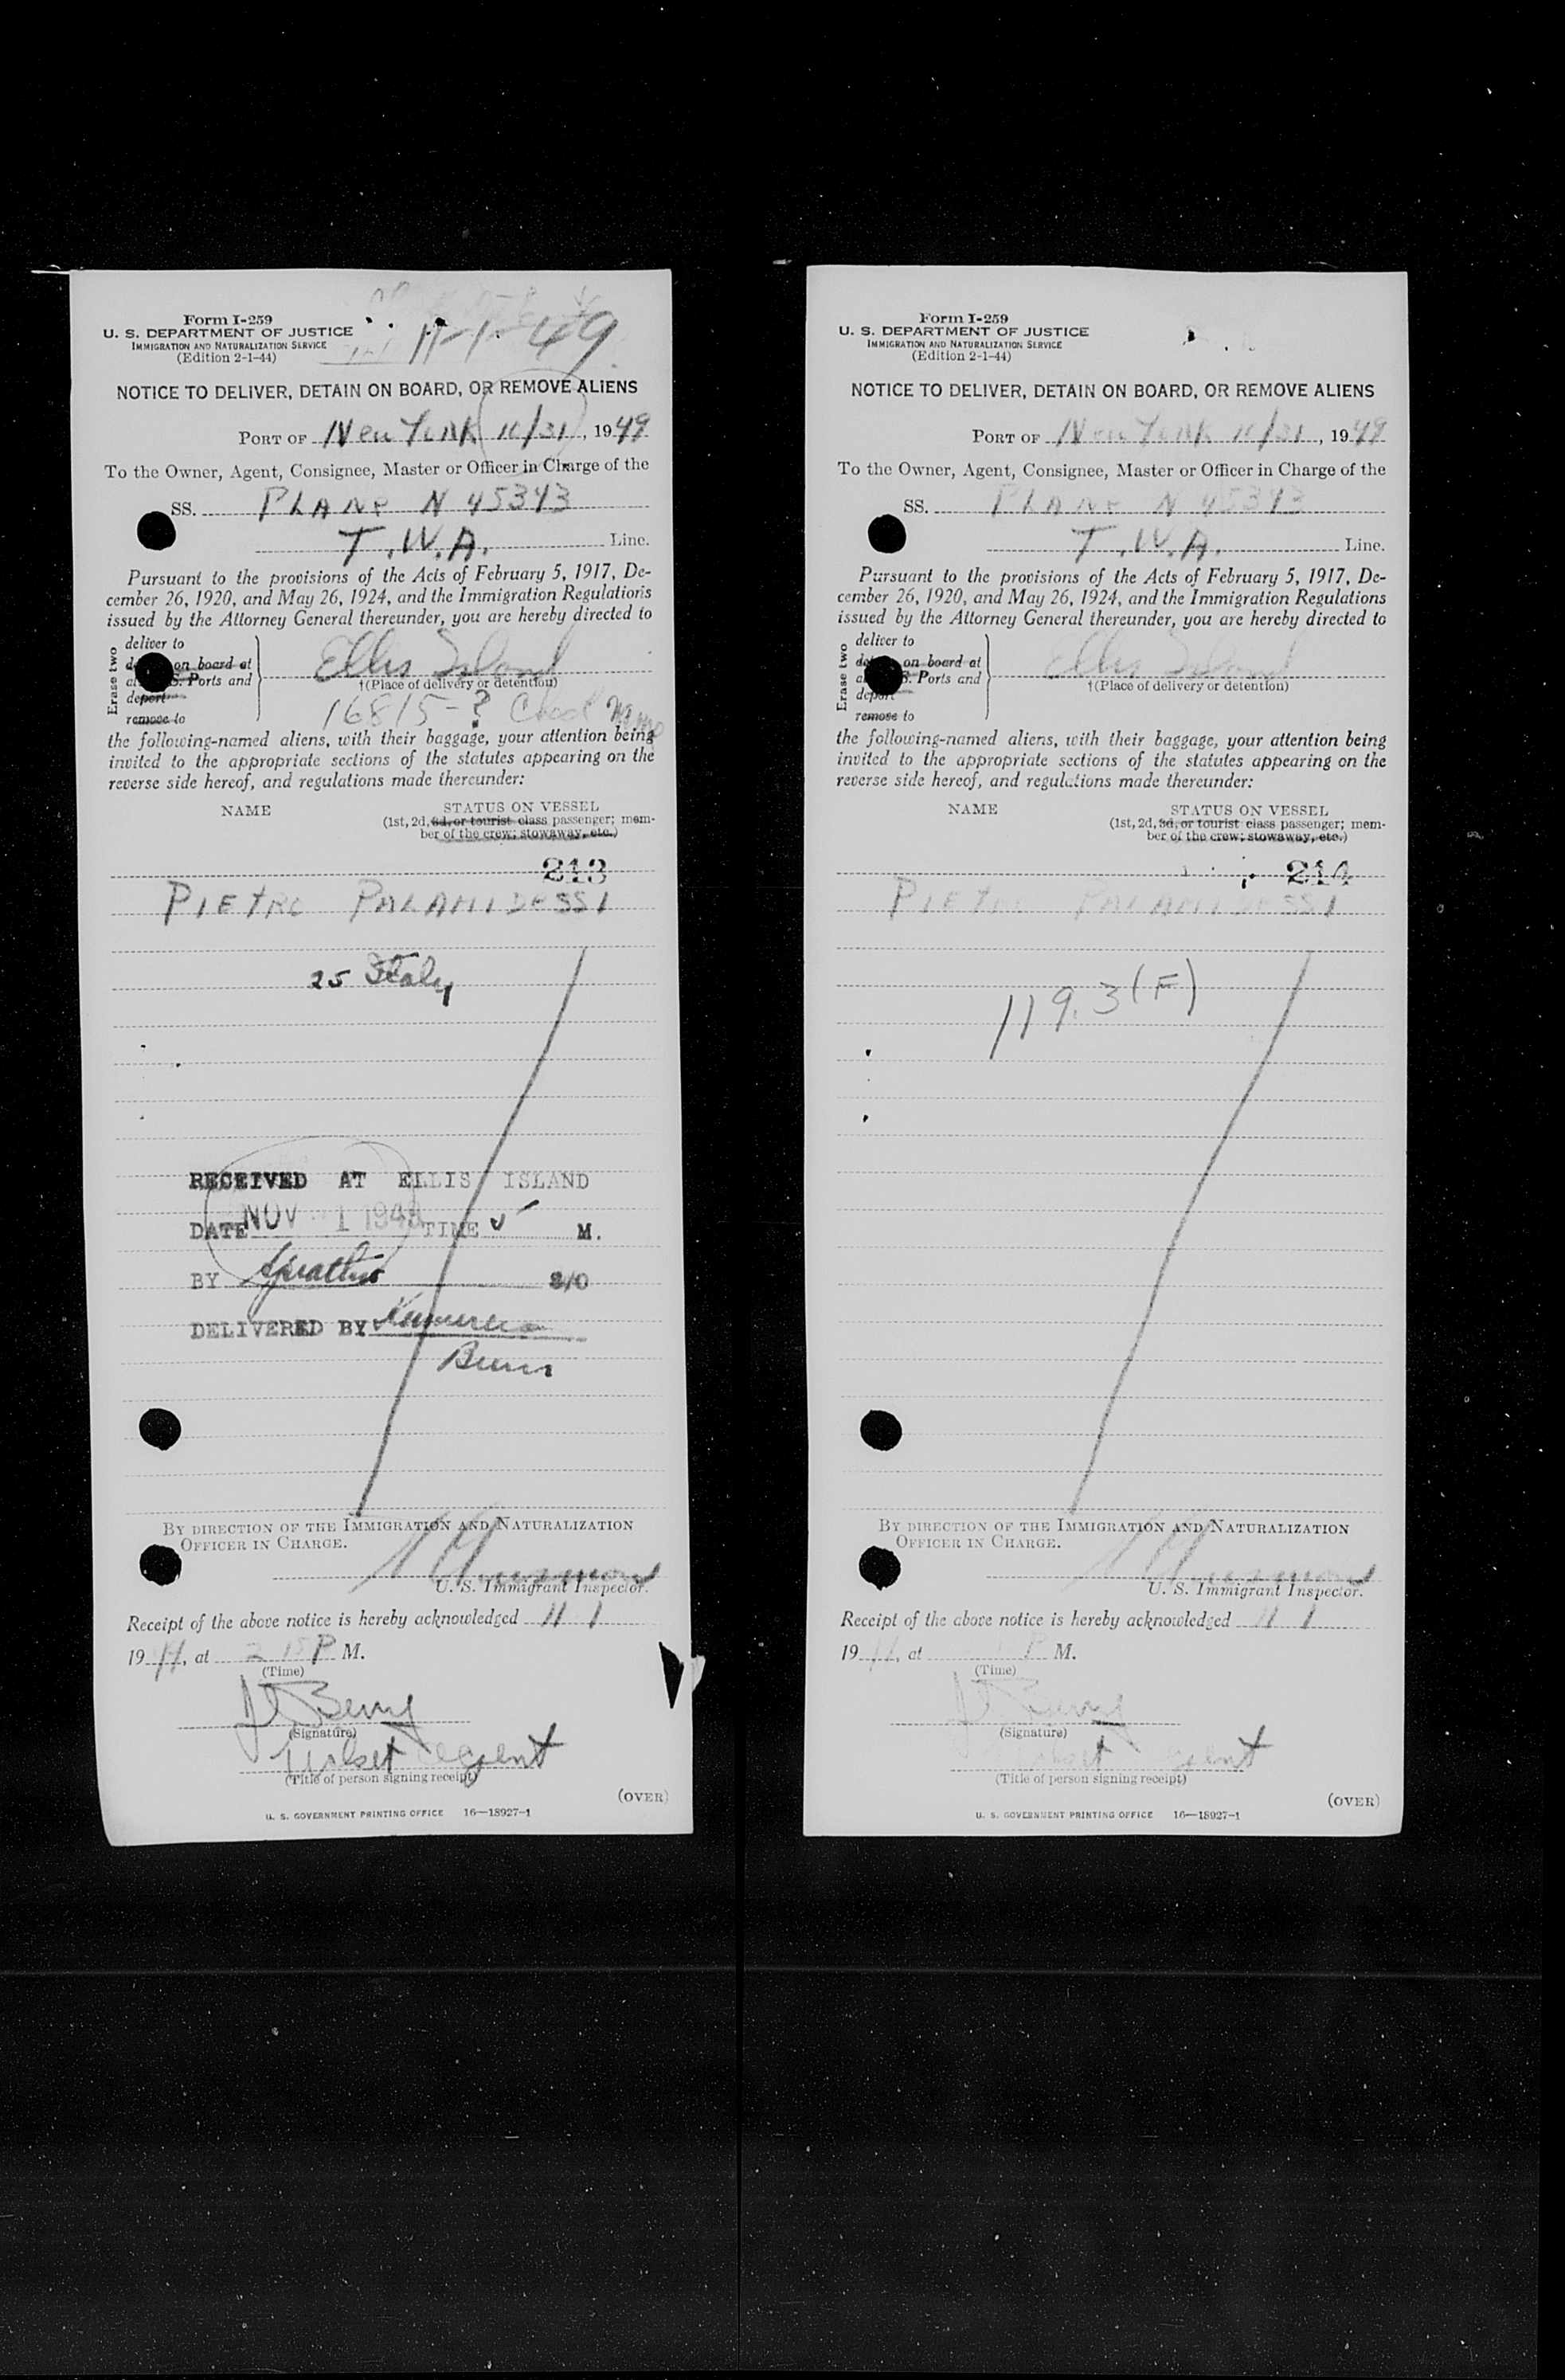 Form I-259
U. S. DEPARTMENT OF JUSTICE
IMMIGRATION AND NATURALIZATION SERVICE
(Edition 2-1-44)
11-1-49
NOTICE TO DELIVER, DETAIN ON BOARD, OR REMOVE ALIENS
PORT OF New York 10/31, 1949
To the Owner, Agent, Consignee, Master or Officer in Charge of the
SS. PLANE N 45343
T.W.A. Line.
Pursuant to the provisions of the Acts of February 5, 1917, De-
cember 26, 1920, and May 26, 1924, and the Immigration Regulations
issued by the Attorney General thereunder, you are hereby directed to
Erase two
deliver to
on board at
S. Ports and
deport
remove to
Ellis Island
†(Place of delivery or detention)
16815-?
the following-named aliens, with their baggage, your attention being
invited to the appropriate sections of the statutes appearing on the
reverse side hereof, and regulations made thereunder:
NAME
STATUS ON VESSEL
(1st, 2d, 3d, or tourist class passenger; mem-
ber of the crew; stowaway, etc.)
213
PIETRO PALAMIDESSI
25 Italy
RECEIVED AT ELLIS ISLAND
DATE NOV 1 1949 TIME M.
BY
DELIVERED BY
Burns
BY DIRECTION OF THE IMMIGRATION AND NATURALIZATION
OFFICER IN CHARGE.
U. S. Immigrant Inspector.
Receipt of the above notice is hereby acknowledged 11 1
19, at 2 15 P M.
(Time)
Berry
(Signature)
Ticket agent
(Title of person signing receipt)
(OVER)
U. S. GOVERNMENT PRINTING OFFICE 16—18927-1
Form I-259
U. S. DEPARTMENT OF JUSTICE
IMMIGRATION AND NATURALIZATION SERVICE
(Edition 2-1-44)
NOTICE TO DELIVER, DETAIN ON BOARD, OR REMOVE ALIENS
PORT OF New York 10/31, 1949
To the Owner, Agent, Consignee, Master or Officer in Charge of the
SS. PLANE N 45343
T.W.A. Line.
Pursuant to the provisions of the Acts of February 5, 1917, De-
cember 26, 1920, and May 26, 1924, and the Immigration Regulations
issued by the Attorney General thereunder, you are hereby directed to
Erase two
deliver to
on board at
S. Ports and
deport
remove to
Ellis Island
†(Place of delivery or detention)
the following-named aliens, with their baggage, your attention being
invited to the appropriate sections of the statutes appearing on the
reverse side hereof, and regulations made thereunder:
NAME
STATUS ON VESSEL
(1st, 2d, 3d, or tourist class passenger; mem-
ber of the crew; stowaway, etc.)
214
PIETRO PALAMIDESSI
119.3(F)
BY DIRECTION OF THE IMMIGRATION AND NATURALIZATION
OFFICER IN CHARGE.
U. S. Immigrant Inspector.
Receipt of the above notice is hereby acknowledged 11 1
19, at P M.
(Time)
Berry
(Signature)
Ticket agent
(Title of person signing receipt)
(OVER)
U. S. GOVERNMENT PRINTING OFFICE 16—18927-1